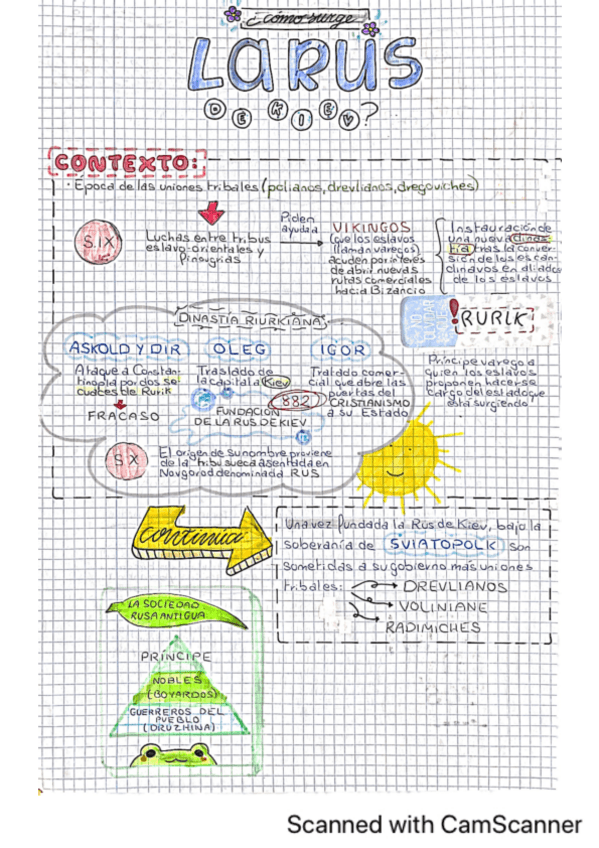 ¿cómo surge
LA RUS
DE KIEV?
CONTEXTO:
· Época de las uniones tribales (polianos, drevlianos, dregoviches)
S.IX
Luchas entre tribus
eslavo-orientales y
Pinougrias
Piden
ayuda a
VIKINGOS
(que los eslavos
llaman varegos)
acuden por interés
de abrir nuevas
rutas comerciales
hacia Bizancio
Instauración de
una nueva dinas-
tía tras la conver-
sión de los escan-
dinavos en aliados
de los eslavos
DINASTÍA RIURKIANA
ASKOLD Y DIR
Ataque a Constan-
tinopla por dos se-
cuaces de Rurik
FRACASO
OLEG
Traslado de
la capital a Kiev
882
FUNDACIÓN
DE LA RUS DE KIEV
IGOR
Tratado comer-
cial que abre las
puertas del
CRISTIANISMO
a su Estado
NO
OLVIDAR
QUE
!RURIK
Príncipe varego a
quien los eslavos
proponen hacerse
cargo del estado que
está surgiendo
S.X
El origen de su nombre proviene
de la tribu sueca asentada en
Novgorod denominada RUS
continúa
Una vez fundada la Rus de Kiev, bajo la
soberanía de SVIATOPOLK son
sometidas a su gobierno más uniones
tribales:
DREVLIANOS
VOLINIANE
RADIMICHES
LA SOCIEDAD
RUSA ANTIGUA
PRÍNCIPE
NOBLES
(BOYARDOS)
GUERREROS DEL
PUEBLO
(DRUZHINA)
Scanned with CamScanner